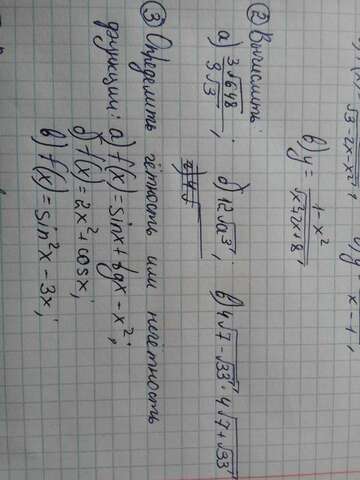 f(x) = √3-2x-x²;
y = x-1;
в) y = 1-x² / √x³2x+8;
② Вычислить:
а) 3√648 / 3√3; б) 12√a³; в) 4√7-√33 · 4√7+√33
③ Определить чётность или нечетность
функции: а) f(x) = sinx + tgx - x²;
б) f(x) = 2x² + cosx;
в) f(x) = sin²x - 3x;